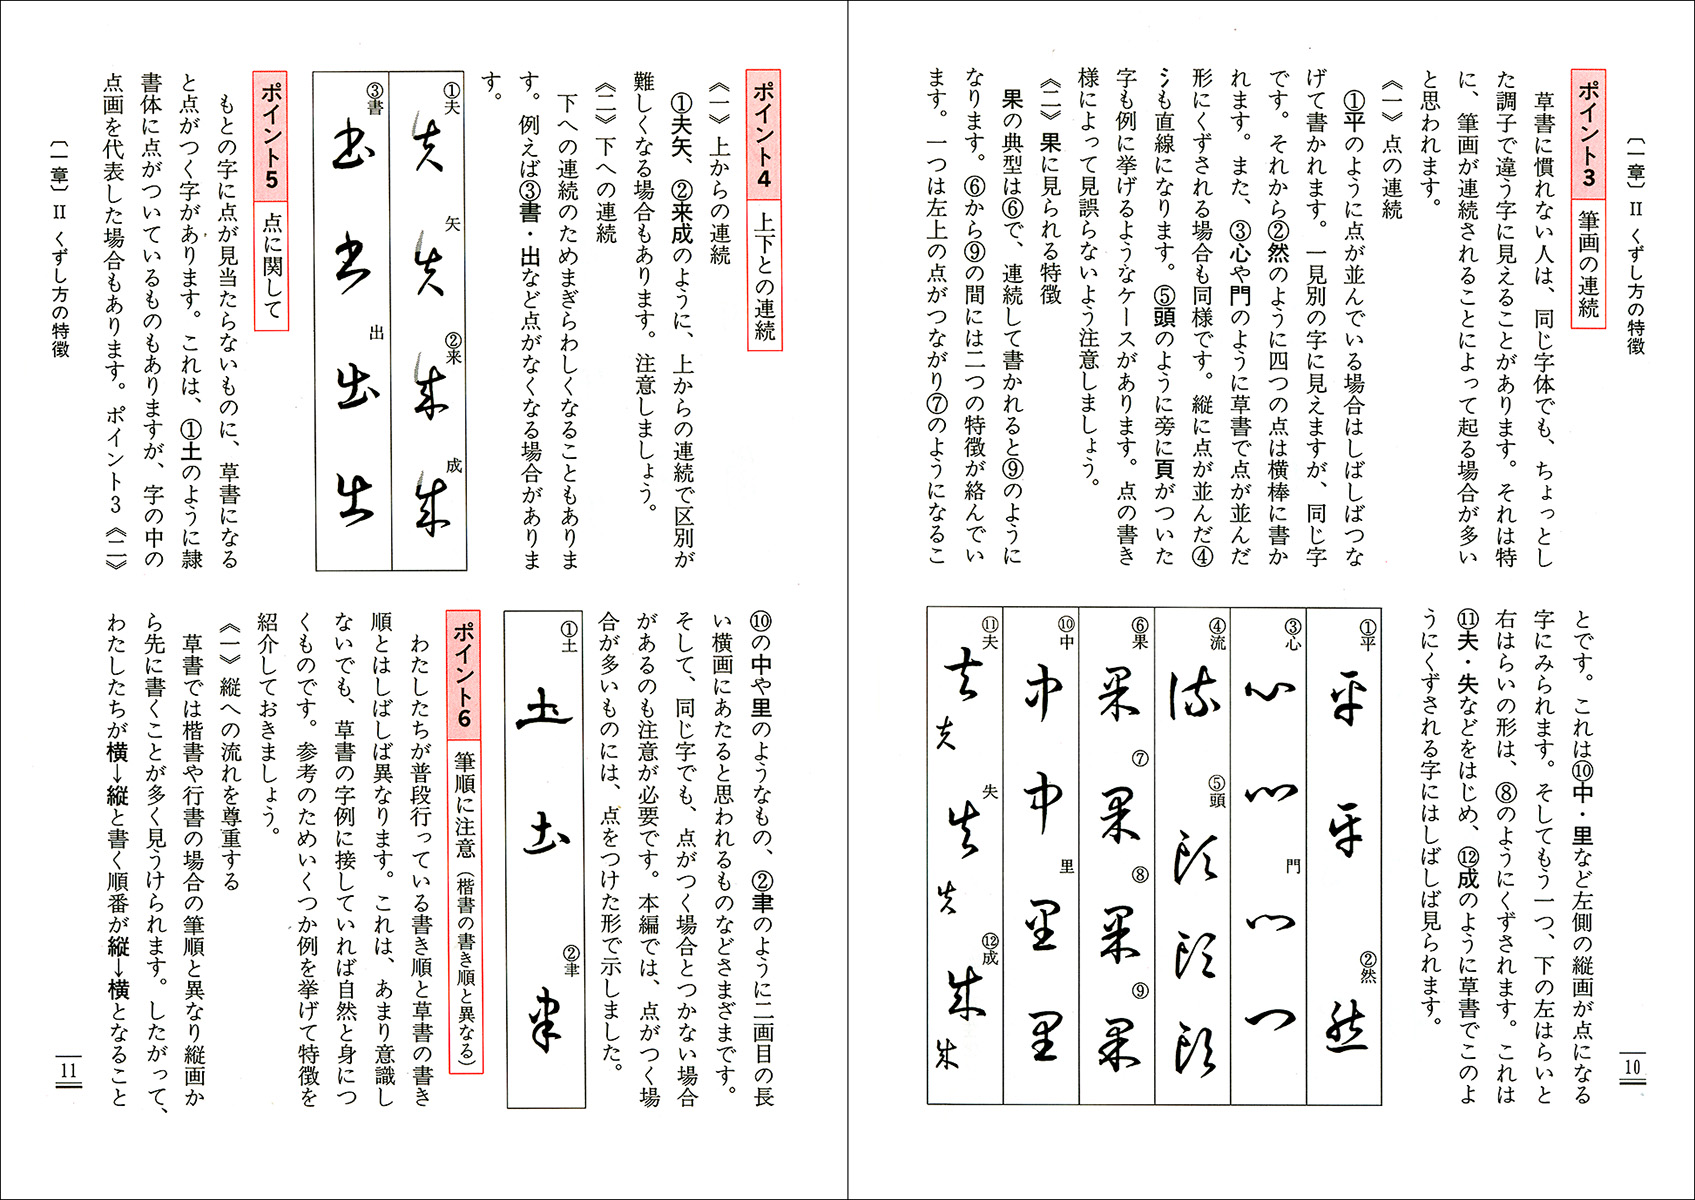 〔一章〕 Ⅱ くずし方の特徴
ポイント3 筆画の連続
草書に慣れない人は、同じ字体でも、ちょっとし
た調子で違う字に見えることがあります。それは特
に、筆画が連続されることによって起る場合が多い
と思われます。
《一》点の連続
①平のように点が並んでいる場合はしばしばつな
げて書かれます。一見別の字に見えますが、同じ字
です。それから②然のように四つの点は横棒に書か
れます。また、③心や門のように草書で点が並んだ
形にくずされる場合も同様です。縦に点が並んだ④
⺀も直線になります。⑤頭のように旁に頁がついた
字も例に挙げるようなケースがあります。点の書き
様によって見誤らないよう注意しましょう。
《二》果に見られる特徴
果の典型は⑥で、連続して書かれると⑨のように
なります。⑥から⑨の間には二つの特徴が絡んでい
ます。一つは左上の点がつながり⑦のようになるこ
とです。これは⑩中・里など左側の縦画が点になる
字にみられます。そしてもう一つ、下の左はらいと
右はらいの形は、⑧のようにくずされます。これは
⑪夫・失などをはじめ、⑫成のように草書でこのよ
うにくずされる字にはしばしば見られます。
①平 ②然
③心 門
④流 ⑤頭
⑥果 ⑦ ⑧ ⑨
⑩中 里
⑪夫 失 ⑫成
10
ポイント4 上下との連続
《一》上からの連続
①夫矢、②来成のように、上からの連続で区別が
難しくなる場合もあります。注意しましょう。
《二》下への連続
下への連続のためまぎらわしくなることもありま
す。例えば③書・出など点がなくなる場合がありま
す。
①夫 矢 ②来 成
③書 出
ポイント5 点に関して
もとの字に点が見当たらないものに、草書になる
と点がつく字があります。これは、①土のように隷
書体に点がついているものもありますが、字の中の
点画を代表した場合もあります。ポイント3《二》
⑩の中や里のようなもの、②聿のように二画目の長
い横画にあたると思われるものなどさまざまです。
そして、同じ字でも、点がつく場合とつかない場合
があるのも注意が必要です。本編では、点がつく場
合が多いものには、点をつけた形で示しました。
①土 ②聿
ポイント6 筆順に注意（楷書の書き順と異なる）
わたしたちが普段行っている書き順と草書の書き
順とはしばしば異なります。これは、あまり意識し
ないでも、草書の字例に接していれば自然と身につ
くものです。参考のためいくつか例を挙げて特徴を
紹介しておきましょう。
《一》縦への流れを尊重する
草書では楷書や行書の場合の筆順と異なり縦画か
ら先に書くことが多く見うけられます。したがって、
わたしたちが横→縦と書く順番が縦→横となること
〔一章〕 Ⅱ くずし方の特徴
11